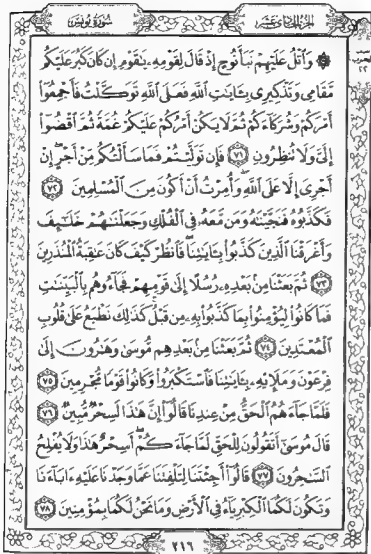 الجزء الحادي عشر
سورة يونس
۞ وَاتْلُ عَلَيْهِمْ نَبَأَ نُوحٍ إِذْ قَالَ لِقَوْمِهِ يَا قَوْمِ إِن كَانَ كَبُرَ عَلَيْكُم
مَّقَامِي وَتَذْكِيرِي بِآيَاتِ اللَّهِ فَعَلَى اللَّهِ تَوَكَّلْتُ فَأَجْمِعُوا
أَمْرَكُمْ وَشُرَكَاءَكُمْ ثُمَّ لَا يَكُنْ أَمْرُكُمْ عَلَيْكُمْ غُمَّةً ثُمَّ اقْضُوا
إِلَيَّ وَلَا تُنظِرُونِ ٧١ فَإِن تَوَلَّيْتُمْ فَمَا سَأَلْتُكُم مِّنْ أَجْرٍ إِنْ
أَجْرِيَ إِلَّا عَلَى اللَّهِ وَأُمِرْتُ أَنْ أَكُونَ مِنَ الْمُسْلِمِينَ ٧٢
فَكَذَّبُوهُ فَنَجَّيْنَاهُ وَمَن مَّعَهُ فِي الْفُلْكِ وَجَعَلْنَاهُمْ خَلَائِفَ
وَأَغْرَقْنَا الَّذِينَ كَذَّبُوا بِآيَاتِنَا فَانظُرْ كَيْفَ كَانَ عَاقِبَةُ الْمُنذَرِينَ
٧٣ ثُمَّ بَعَثْنَا مِن بَعْدِهِ رُسُلًا إِلَى قَوْمِهِمْ فَجَاءُوهُم بِالْبَيِّنَاتِ
فَمَا كَانُوا لِيُؤْمِنُوا بِمَا كَذَّبُوا بِهِ مِن قَبْلُ كَذَلِكَ نَطْبَعُ عَلَى قُلُوبِ
الْمُعْتَدِينَ ٧٤ ثُمَّ بَعَثْنَا مِن بَعْدِهِم مُّوسَى وَهَارُونَ إِلَى
فِرْعَوْنَ وَمَلَئِهِ بِآيَاتِنَا فَاسْتَكْبَرُوا وَكَانُوا قَوْمًا مُّجْرِمِينَ ٧٥
فَلَمَّا جَاءَهُمُ الْحَقُّ مِنْ عِندِنَا قَالُوا إِنَّ هَذَا لَسِحْرٌ مُّبِينٌ ٧٦
قَالَ مُوسَى أَتَقُولُونَ لِلْحَقِّ لَمَّا جَاءَكُمْ أَسِحْرٌ هَذَا وَلَا يُفْلِحُ
السَّاحِرُونَ ٧٧ قَالُوا أَجِئْتَنَا لِتَلْفِتَنَا عَمَّا وَجَدْنَا عَلَيْهِ آبَاءَنَا
وَتَكُونَ لَكُمَا الْكِبْرِيَاءُ فِي الْأَرْضِ وَمَا نَحْنُ لَكُمَا بِمُؤْمِنِينَ ٧٨
٢١٦